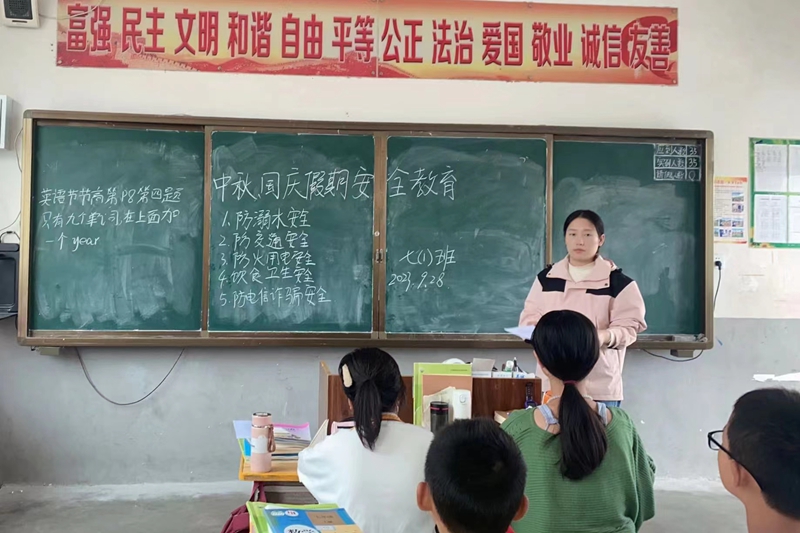 富强 民主 文明 和谐 自由 平等 公正 法治 爱国 敬业 诚信 友善
英语节节高第P8第四题
只有九个单词,在上面加
一个year
中秋,国庆假期安全教育
1.防溺水安全
2.防交通安全
3.防火用电安全
4.饮食卫生安全
5.防电信诈骗安全
七(1)班
2023.9.28
应到人数 35
实到人数 35